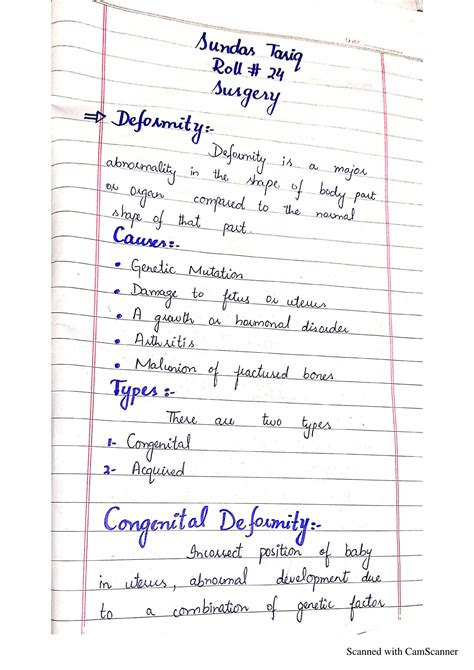 Sundas Tariq
Roll # 24
Surgery
⇒ Deformity:-
Deformity is a major
abnormality in the shape of body part
or organ compared to the normal
shape of that part.
Causes:-
• Genetic Mutation
• Damage to fetus or uterus
• A growth or hormonal disorder
• Arthritis
• Malunion of fractured bones
Types:-
There are two types
1- Congenital
2- Acquired
Congenital Deformity:-
Incorrect position of baby
in uterus, abnormal development due
to a combination of genetic factor
Scanned with CamScanner